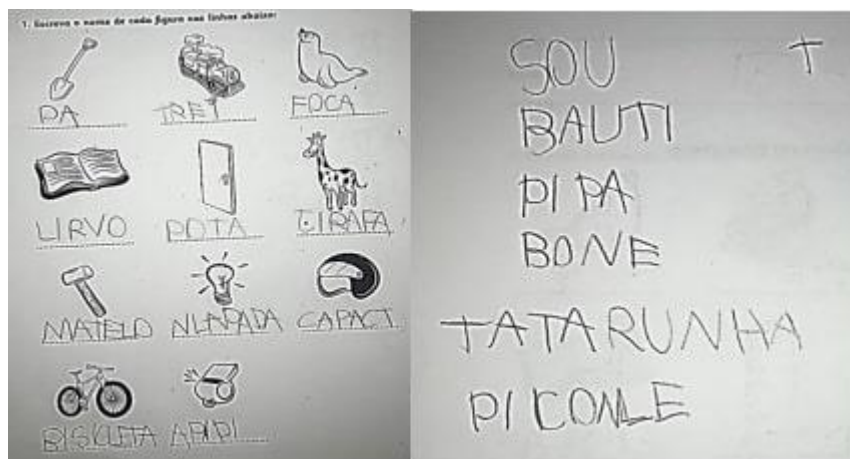 1. Escreva o nome de cada figura nas linhas abaixo:
PA TRET FOCA
LIRVO POTA GIRAFA
MATELO NLAPADA CAPACT
BISICLETA APIPI
SOU T
BAUTI
PIPA
BONE
TATARUNHA